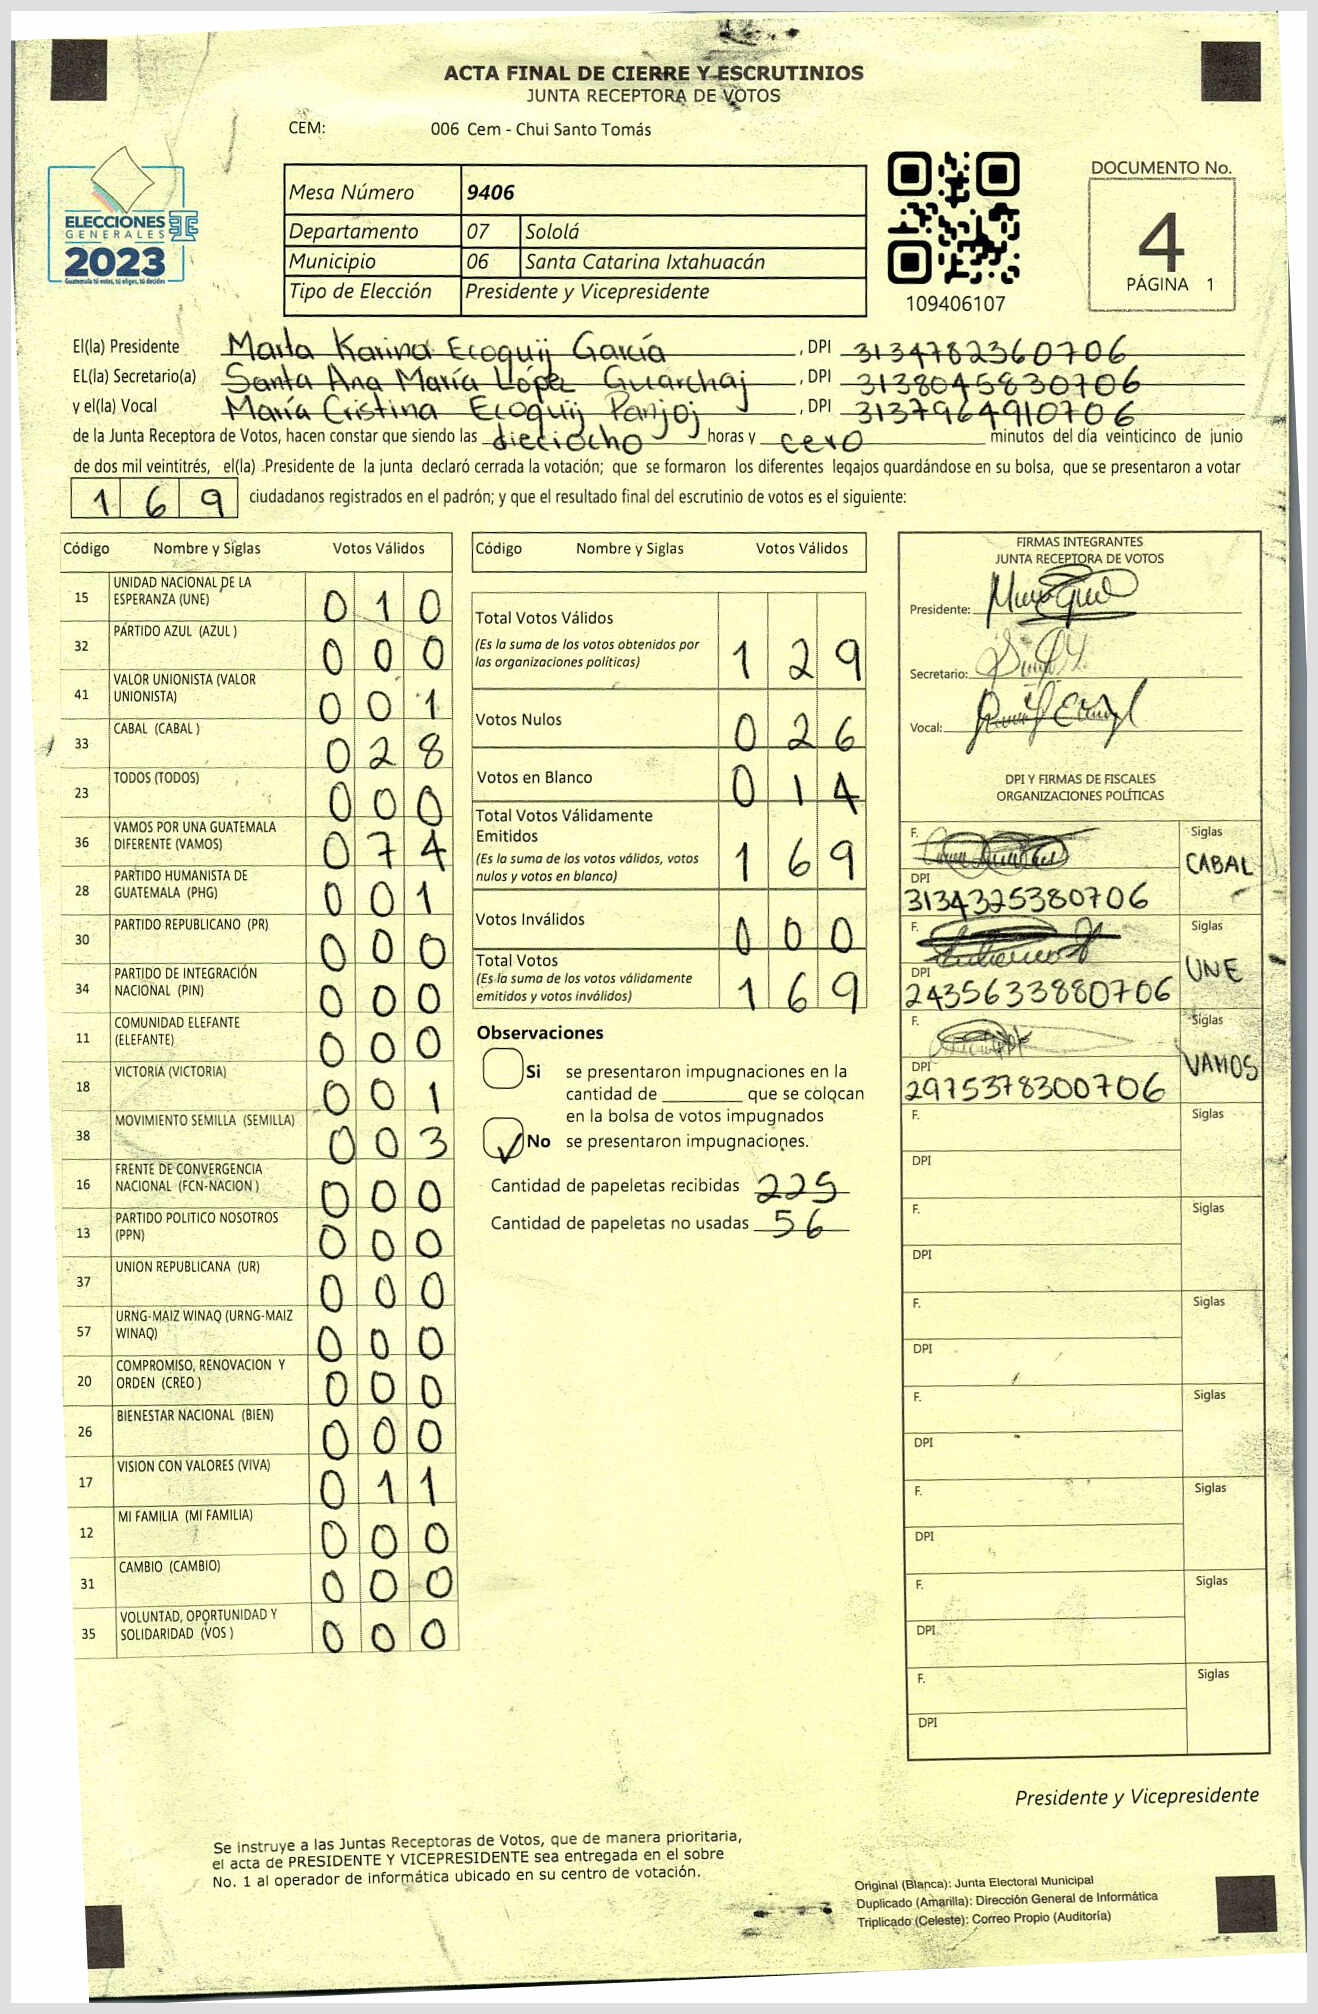 ACTA FINAL DE CIERRE Y ESCRUTINIOS
JUNTA RECEPTORA DE VOTOS
CEM: 006 Cem - Chui Santo Tomás
ELECCIONES
GENERALES
2023
Guatemala tú votas, tú eliges, tú decides
Mesa Número 9406
Departamento 07 Sololá
Municipio 06 Santa Catarina Ixtahuacán
Tipo de Elección Presidente y Vicepresidente
109406107
DOCUMENTO No.
4
PÁGINA 1
El(la) Presidente Marta Karina Ecoquij García , DPI 3134782360706
EL(la) Secretario(a) Santa Ana María López Guarchaj , DPI 3138045830706
y el(la) Vocal María Cristina Ecoquij Panjoj , DPI 3137964910706
de la Junta Receptora de Votos, hacen constar que siendo las dieciocho horas y cero minutos del día veinticinco de junio
de dos mil veintitrés, el(la) Presidente de la junta declaró cerrada la votación; que se formaron los diferentes legajos guardándose en su bolsa, que se presentaron a votar
169 ciudadanos registrados en el padrón; y que el resultado final del escrutinio de votos es el siguiente:
Código Nombre y Siglas Votos Válidos
15 UNIDAD NACIONAL DE LA ESPERANZA (UNE) 010
32 PARTIDO AZUL (AZUL ) 000
41 VALOR UNIONISTA (VALOR UNIONISTA) 001
33 CABAL (CABAL ) 028
23 TODOS (TODOS) 000
36 VAMOS POR UNA GUATEMALA DIFERENTE (VAMOS) 074
28 PARTIDO HUMANISTA DE GUATEMALA (PHG) 001
30 PARTIDO REPUBLICANO (PR) 000
34 PARTIDO DE INTEGRACIÓN NACIONAL (PIN) 000
11 COMUNIDAD ELEFANTE (ELEFANTE) 000
18 VICTORIA (VICTORIA) 001
38 MOVIMIENTO SEMILLA (SEMILLA) 003
16 FRENTE DE CONVERGENCIA NACIONAL (FCN-NACION ) 000
13 PARTIDO POLITICO NOSOTROS (PPN) 000
37 UNION REPUBLICANA (UR) 000
57 URNG-MAIZ WINAQ (URNG-MAIZ WINAQ) 000
20 COMPROMISO, RENOVACION Y ORDEN (CREO ) 000
26 BIENESTAR NACIONAL (BIEN) 000
17 VISION CON VALORES (VIVA) 011
12 MI FAMILIA (MI FAMILIA) 000
31 CAMBIO (CAMBIO) 000
35 VOLUNTAD, OPORTUNIDAD Y SOLIDARIDAD (VOS ) 000
Código Nombre y Siglas Votos Válidos
Total Votos Válidos
(Es la suma de los votos obtenidos por
las organizaciones políticas) 129
Votos Nulos 026
Votos en Blanco 014
Total Votos Válidamente
Emitidos
(Es la suma de los votos válidos, votos
nulos y votos en blanco) 169
Votos Inválidos 000
Total Votos
(Es la suma de los votos válidamente
emitidos y votos inválidos) 169
Observaciones
Si se presentaron impugnaciones en la
cantidad de ________ que se colocan
en la bolsa de votos impugnados
No se presentaron impugnaciones.
Cantidad de papeletas recibidas 225
Cantidad de papeletas no usadas 56
FIRMAS INTEGRANTES
JUNTA RECEPTORA DE VOTOS
Presidente:
Secretario:
Vocal:
DPI Y FIRMAS DE FISCALES
ORGANIZACIONES POLÍTICAS
F. Siglas
CABAL
DPI
3134325380706
F. Siglas
UNE
DPI
2435633880706
F. Siglas
VAMOS
DPI
2975378300706
F. Siglas
DPI
F. Siglas
DPI
F. Siglas
DPI
F. Siglas
DPI
F. Siglas
DPI
F. Siglas
DPI
F. Siglas
DPI
Presidente y Vicepresidente
Se instruye a las Juntas Receptoras de Votos, que de manera prioritaria,
el acta de PRESIDENTE Y VICEPRESIDENTE sea entregada en el sobre
No. 1 al operador de informática ubicado en su centro de votación.
Original (Blanca): Junta Electoral Municipal
Duplicado (Amarilla): Dirección General de Informática
Triplicado (Celeste): Correo Propio (Auditoría)